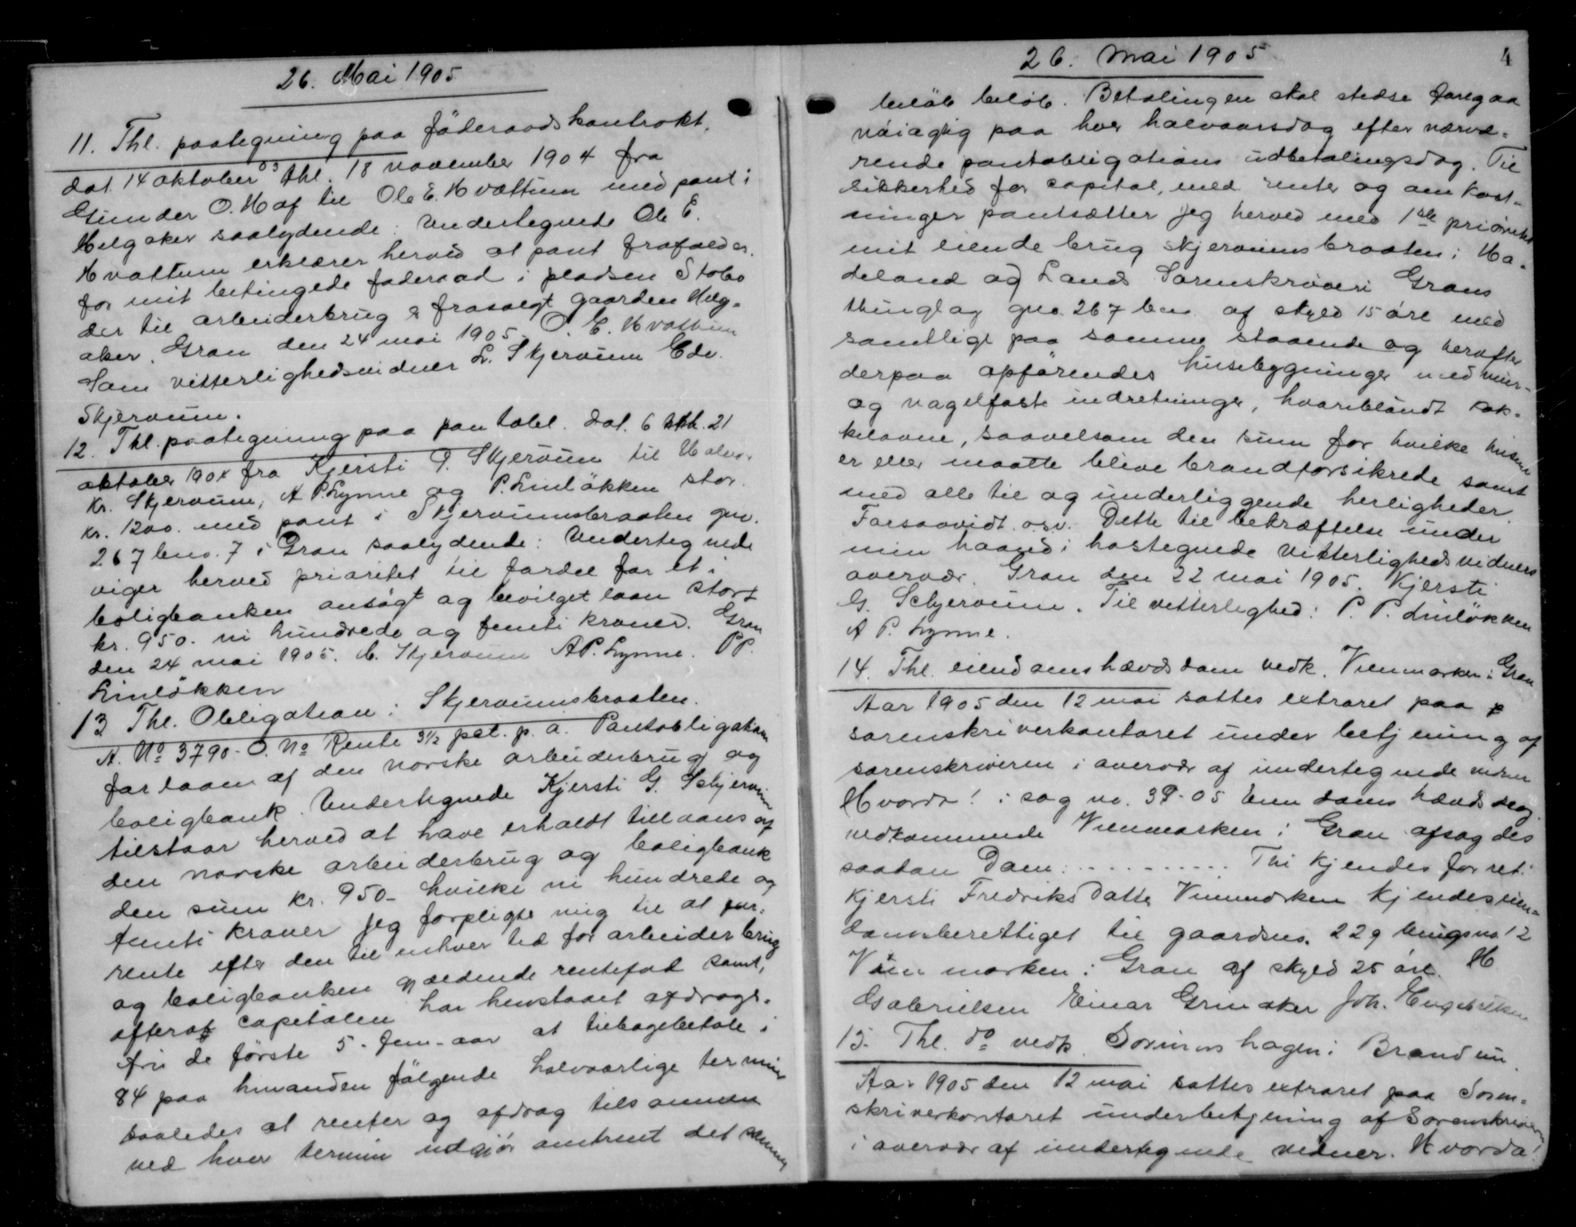 26. Mai 1905
11. Thl. paategning paa föderaadskontrakt.
dat 14 oktober 03 thl. 18 november 1904 fra
Gunder O. Haf til Ole E. Hvattum med pant i
Helgaker saalydende: Undertegnede Ole E.
Hvattum erklærer herved at pant frafalder
for mit betingede föderaad i pladsen Stabo
der til arbeiderbrug er frasolgt gaarden Helg-
aker. Gran den 24 mai 1905. O. E. Hvattum
Som vitterlighedsvidner L. Skjervum Edv.
Skjervum.
12. Thl. paategning paa pantobl. dat. 6 thl. 21
oktober 1904 fra Kjersti G. Skjervum til Halvor
Kr. Skjervum, A P. Lynne og P. Linlökken stor
kr. 1200. med pant i Skjervumsbraaten gno.
267 bno. 7 i Gran saalydende: Undertegnede
viger herved prioritet til fordel for et i
boligbanken ansögt og bevilget laan stort
kr. 950. ni hundrede og femti kroner. Gran
den 24 mai 1905. Skjervum A P. Lynne. P P.
Linlökken
13 Thl. Obligation i Skjervumsbraaten.
A. No 3790 - O. No Rente 3½ pct. p. a. Pantobligation
for laan af den norske arbeiderbrug og
boligbank. Undertegnede Kjersti G. Schjervum
tilstaar herved at have erholdt tillaans af
den norske arbeiderbrug og boligbank
den sum kr. 950 - hvilke ni hundrede og
femti kroner jeg forpligter mig til at for-
rente efter den til enhver tid for arbeiderbrug
og boligbanken gjældende rentefod samt,
efterat capitalen har henstaaet afdrags-
fri de förste 5 - fem - aar at tilbagebetale i
84 paa hinanden fölgende halvaarlige terminer
saaledes at renter og afdrag tilsammen
ved hver termin udgjör omtrent det samme
26. Mai 1905
4
beløb. Betalingen skal stedse foregaa
nøiagtig paa hver halvaarsdag efter nærvæ-
rende pantobligations udbetalingsdag. Til
sikkerhed for capital, med renter og omkost-
ninger pantsætter jeg herved med 1ste prioritet
mit eiende brug Skjervumsbraaten i Ha-
deland og Lands Sorenskriveri Grans
thinglag gno. 267 bno. af skyld 15 öre med
samtlige paa samme staaende og herefter
derpaa opförendes husebygninger med mur-
og nagelfaste indretninger, hvoriblandt kak-
kelovne, saavelsom den sum for hvilke husene
er eller maatte blive brandforsikrede samt
med alle til og underliggende herligheder.
Forsaavidt osv. Dette til bekræftelse under
min haand i hostegnede vitterlighedsvidners
overvær. Gran den 22 mai 1905. Kjersti
G. Schjervum. Til vitterlighed: P. P. Linlökken
A P. Lynne.
14. Thl. eiendomshævdsdom vedk. Vienmarken i Gran
Aar 1905 den 12 mai sattes extraret paa
sorenskriverkontoret under betjening af
sorenskriveren i overvær af undertegnede vidner
Hvorda! i sag no. 39-05
vedkommende Vienmarken i Gran afsagdes
saadan Dom: . . . . . . . . . Thi kjendes for ret:
Kjersti Fredriksdatter Vienmarken kjendes eien-
domsberettiget til gaardsno. 229 brugsno 12
Vienmarken i Gran af skyld 25 öre. H
Gabrielsen Einar Grinaker Joh. Engebretsen
15. Thl. do vedk. hagen i Brandbu.
Aar 1905 den 12 mai sattes extraret paa Soren-
skriverkontoret under betjening af Sorenskriveren
i overvær af undertegnede vidner. Hvorda!